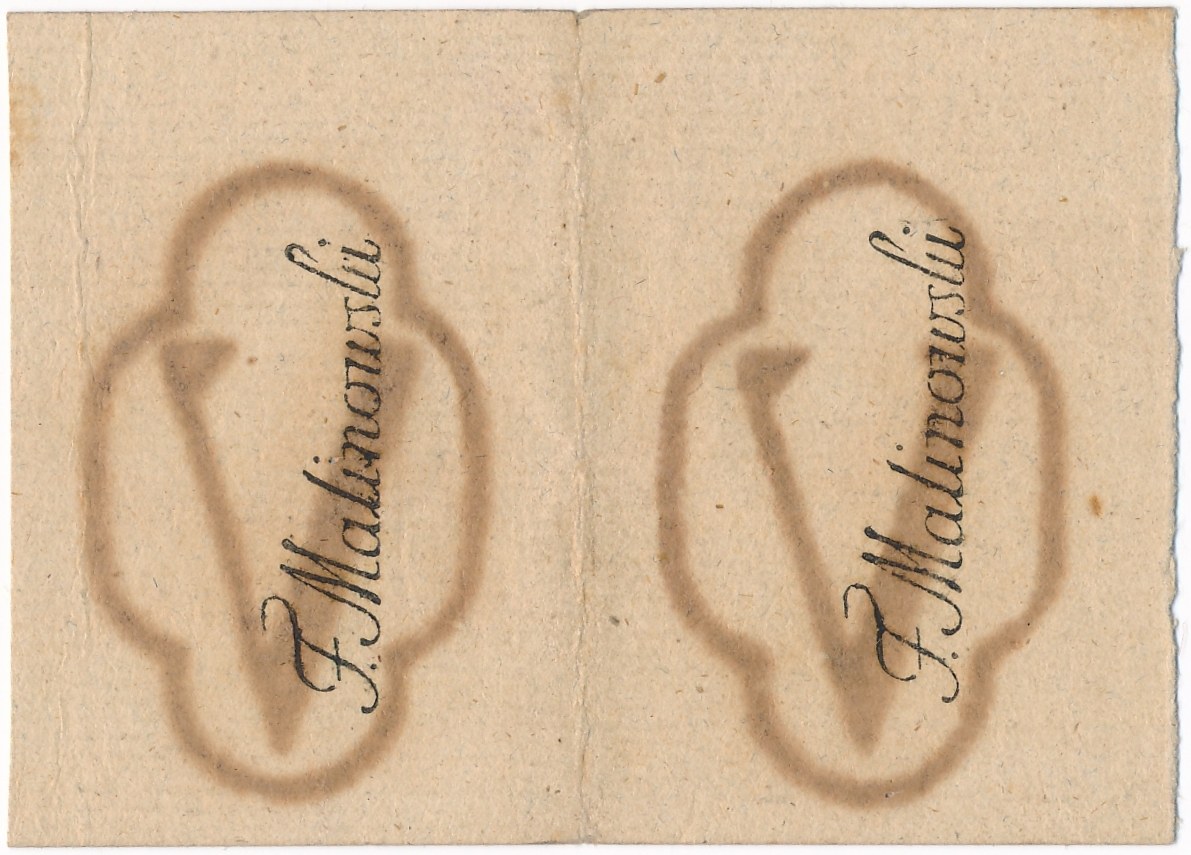 F. Malinowski
F. Malinowski
V
V